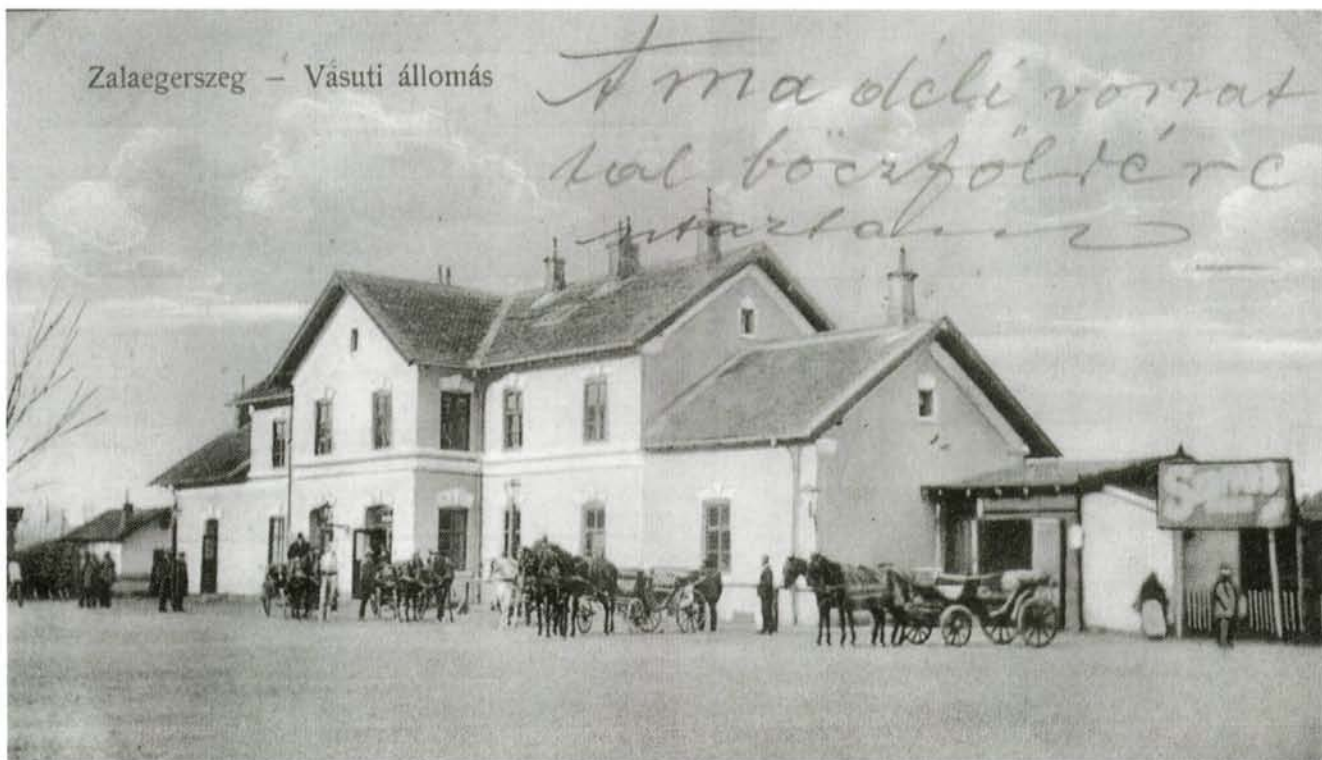 Zalaegerszeg – Vásuti állomás
A ma déli vonat
tal böczföldére
utaztam